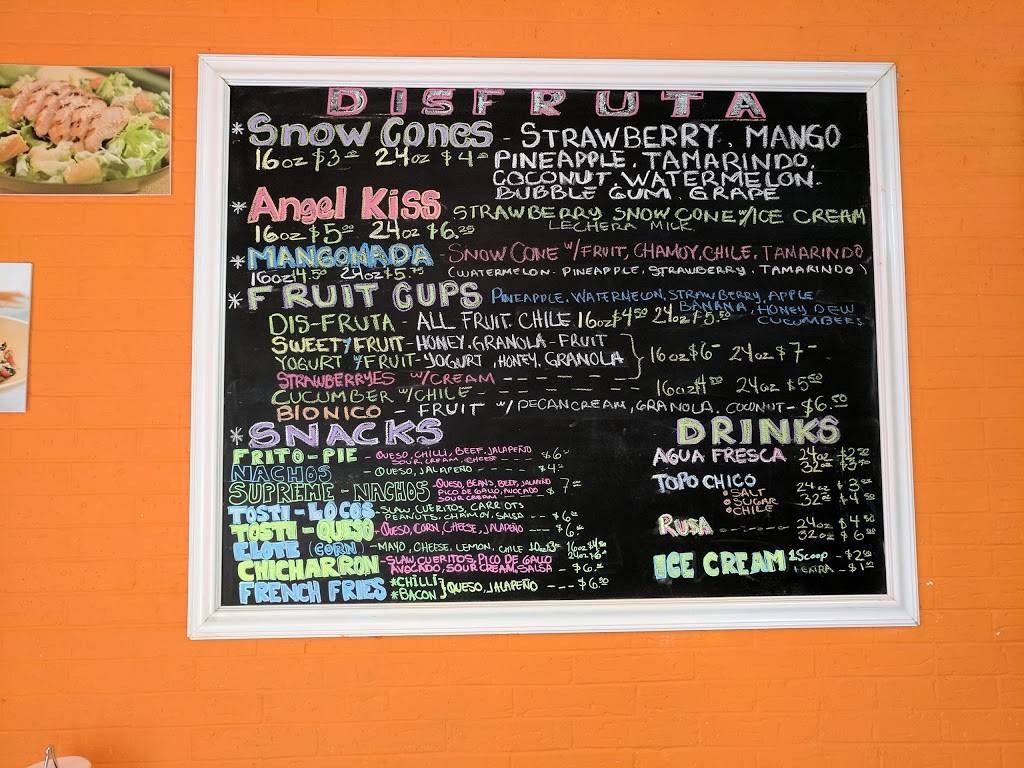 DISFRUTA
* Snow Cones - STRAWBERRY, MANGO
16oz $3.00 24oz $4.00 PINEAPPLE. TAMARINDO.
COCONUT. WATERMELON.
BUBBLE GUM. GRAPE
* Angel Kiss STRAWBERRY SNOW CONE w/ICE CREAM
LECHERA MILK
16oz $5.00 24oz $6.25
* MANGONADA - SNOW CONE w/FRUIT, CHAMOY, CHILE, TAMARINDO
16oz $4.50 24oz $5.75 (WATERMELON. PINEAPPLE, STRAWBERRY. TAMARINDO)
* FRUIT CUPS PINEAPPLE. WATERMELON, STRAWBERRY, APPLE
BANANA, HONEY DEW
CUCUMBERS
DIS-FRUTA - ALL FRUIT. CHILE 16oz $4.50 24oz $5.50
SWEETY FRUIT - HONEY. GRANOLA - FRUIT
YOGURT Y FRUIT - YOGURT, HONEY. GRANOLA } 16oz $6- 24oz $7-
STRAWBERRYES w/CREAM - - - -
CUCUMBER w/CHILE - - - - 16oz $4.00 24oz $5.50
BIONICO - FRUIT w/ PECAN CREAM, GRANOLA. COCONUT - $6.50
* SNACKS
FRITO - PIE - QUESO, CHILLI, BEEF, JALAPEÑO
SOUR CREAM, CHEESE - - - - $6-
NACHOS - QUESO, JALAPEÑO - - - - $4.-
SUPREME - NACHOS - QUESO, BEANS, BEEF, JALAPEÑO
PICO DE GALLO, AVOCADO $7-
SOUR CREAM
TOSTI - LOCOS - SLAW, CUERITOS, CARROTS
PEANUTS, CHAMOY, SALSA - - $6.-
TOSTI - QUESO - QUESO, CORN, CHEESE, JALAPEÑO - - - $6.-
ELOTE (CORN) - MAYO, CHEESE, LEMON, CHILE 10oz $3.- 16oz $4.50
24oz $6-
CHICHARRON - SLAW, CUERITOS, PICO DE GALLO
AVOCADO, SOUR CREAM, SALSA - $6.-
FRENCH FRIES *CHILLI
*BACON } QUESO, JALAPEÑO - - - $6.50
DRINKS
AGUA FRESCA 24oz - $2.50
32oz - $3.50
TOPO CHICO 24oz - $3.50
• SALT 32oz $4.50
• SUGAR
• CHILE
RUSA - - - - - - 24oz $4.50
32oz $6.00
ICE CREAM 1 Scoop - $2.00
1 EXTRA - $1.00